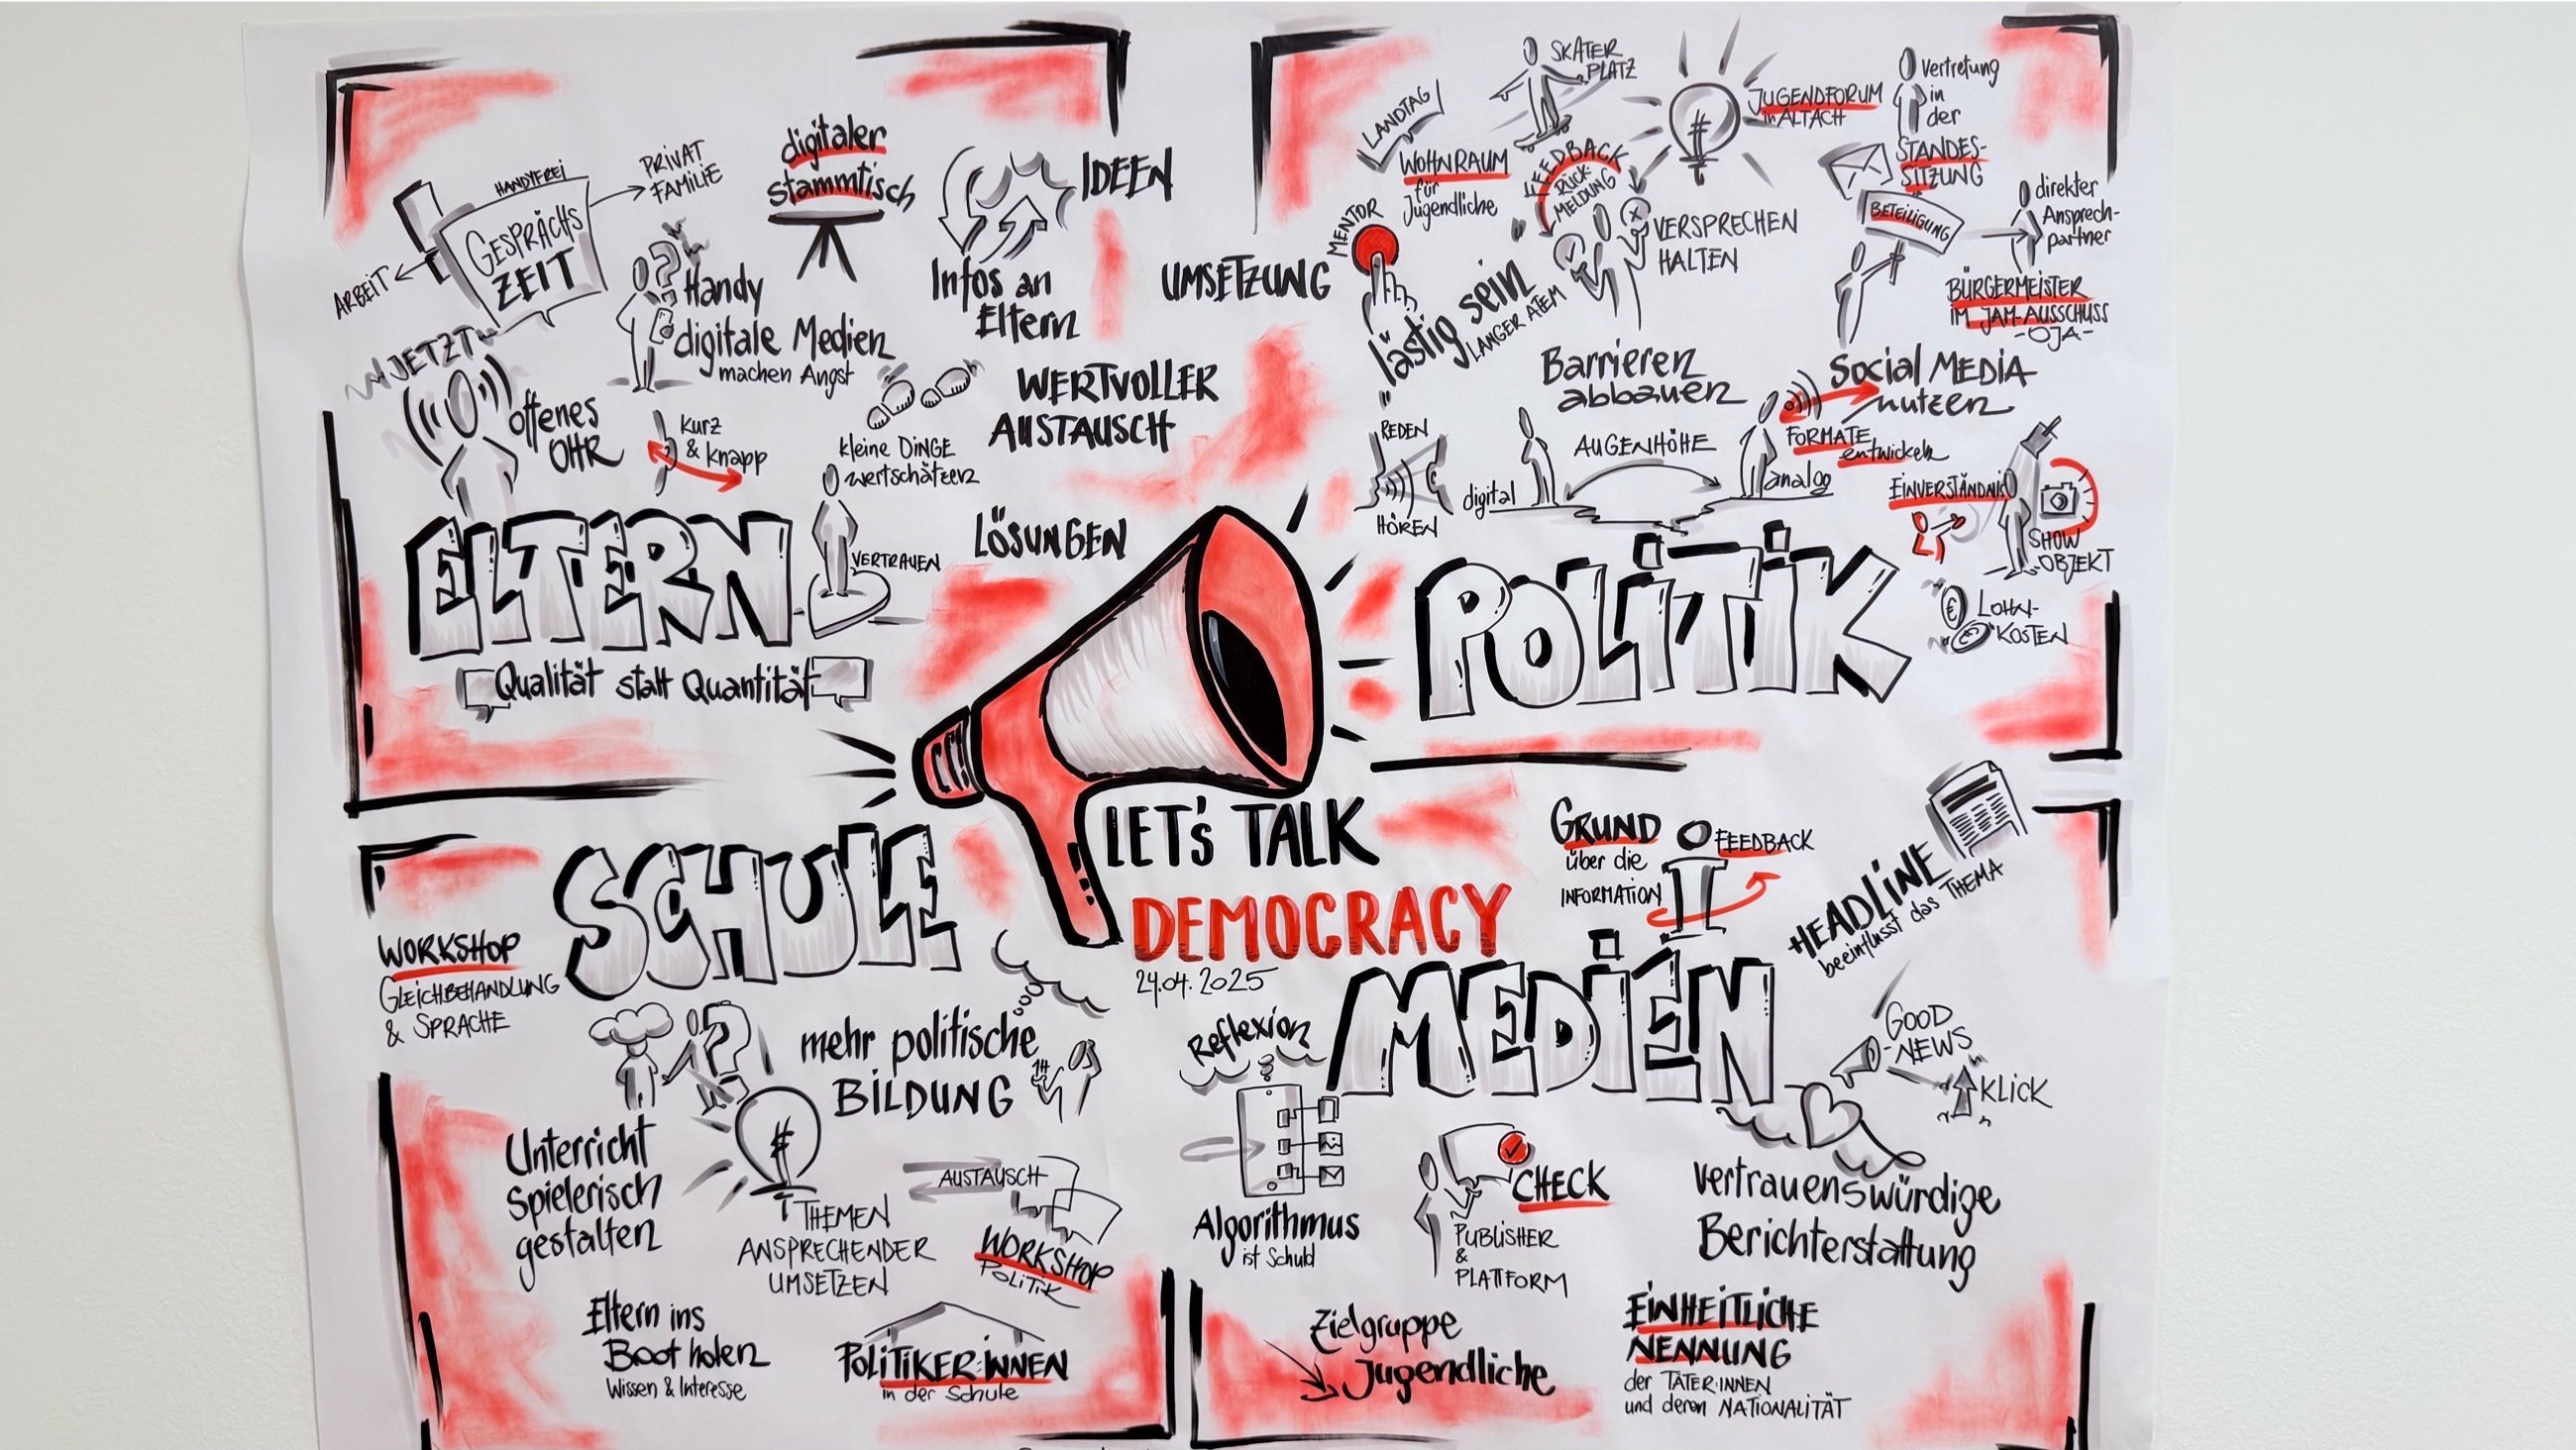 HANDYFREI
GESPRÄCHS
ZEIT
PRIVAT
FAMILIE
ARBEIT
JETZT
offenes
OHR
Handy
digitale Medien
machen Angst
kurz
& knapp
digitaler
stammtisch
IDEEN
Infos an
Eltern
kleine DINGE
wertschätzen
VERTRAUEN
ELTERN
Qualität statt Quantität
WERTVOLLER
AUSTAUSCH
LÖSUNGEN
UMSETZUNG
MENTOR
LANDTAG
WOHNRAUM
für
Jugendliche
SKATER
PLATZ
FEEDBACK
RÜCK-
MELDUNG
JUGENDFORUM
in ALTACH
Vertretung
in
der
STANDES-
SITZUNG
BETEILIGUNG
direkter
Ansprech-
partner
BÜRGERMEISTER
IM JAM-AUSSCHUSS
-OJA-
VERSPRECHEN
HALTEN
"lästig sein"
LANGER ATEM
Barrieren
abbauen
REDEN
HÖREN
digital
AUGENHÖHE
analog
Social MEDIA
nutzen
FORMATE
entwickeln
EINVERSTÄNDNIS
SHOW
OBJEKT
LOHN-
KOSTEN
POLITIK
LET's TALK
DEMOCRACY
24.04.2025
SCHULE
WORKSHOP
GLEICHBEHANDLUNG
& SPRACHE
mehr politische
BILDUNG
Unterricht
spielerisch
gestalten
THEMEN
ANSPRECHENDER
UMSETZEN
AUSTAUSCH
WORKSHOP
POLITIK
Eltern ins
Boot holen
Wissen & Interesse
POLITIKER:INNEN
in der Schule
MEDIEN
GRUND
über die
INFORMATION
FEEDBACK
HEADLINE
beeinflusst das THEMA
GOOD
NEWS
KLICK
Reflexion
Algorithmus
ist Schuld
CHECK
PUBLISHER
&
PLATTFORM
vertrauenswürdige
Berichterstattung
Zielgruppe
Jugendliche
EINHEITLICHE
NENNUNG
der TÄTER:INNEN
und deren NATIONALITÄT